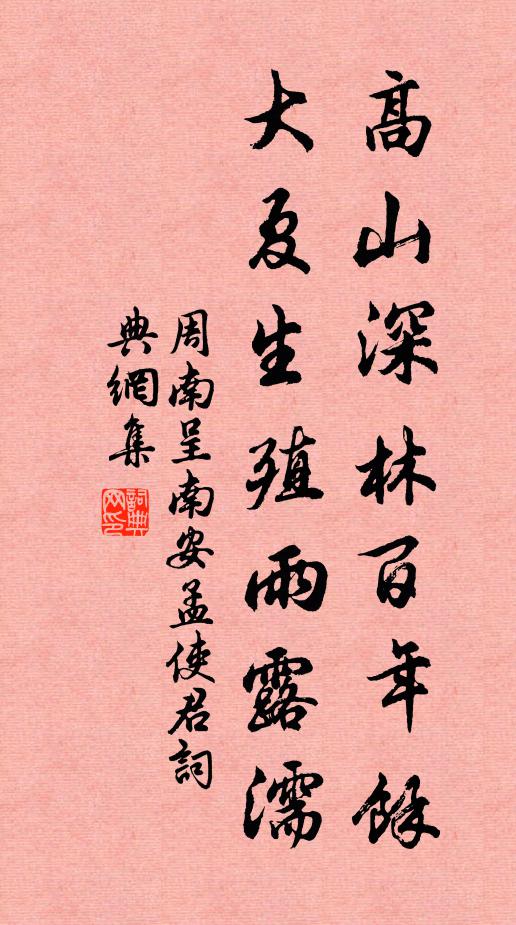 高山深林百年餘
大夏生殖雨露濡
周南呈南安孟使君詞
典網集
詞典網印